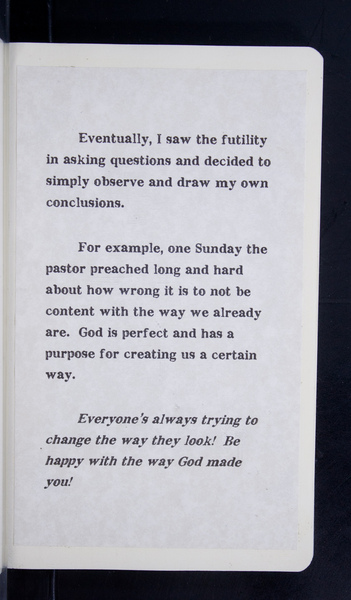 Eventually, I saw the futility
in asking questions and decided to
simply observe and draw my own
conclusions.
For example, one Sunday the
pastor preached long and hard
about how wrong it is to not be
content with the way we already
are. God is perfect and has a
purpose for creating us a certain
way.
Everyone's always trying to
change the way they look! Be
happy with the way God made
you!